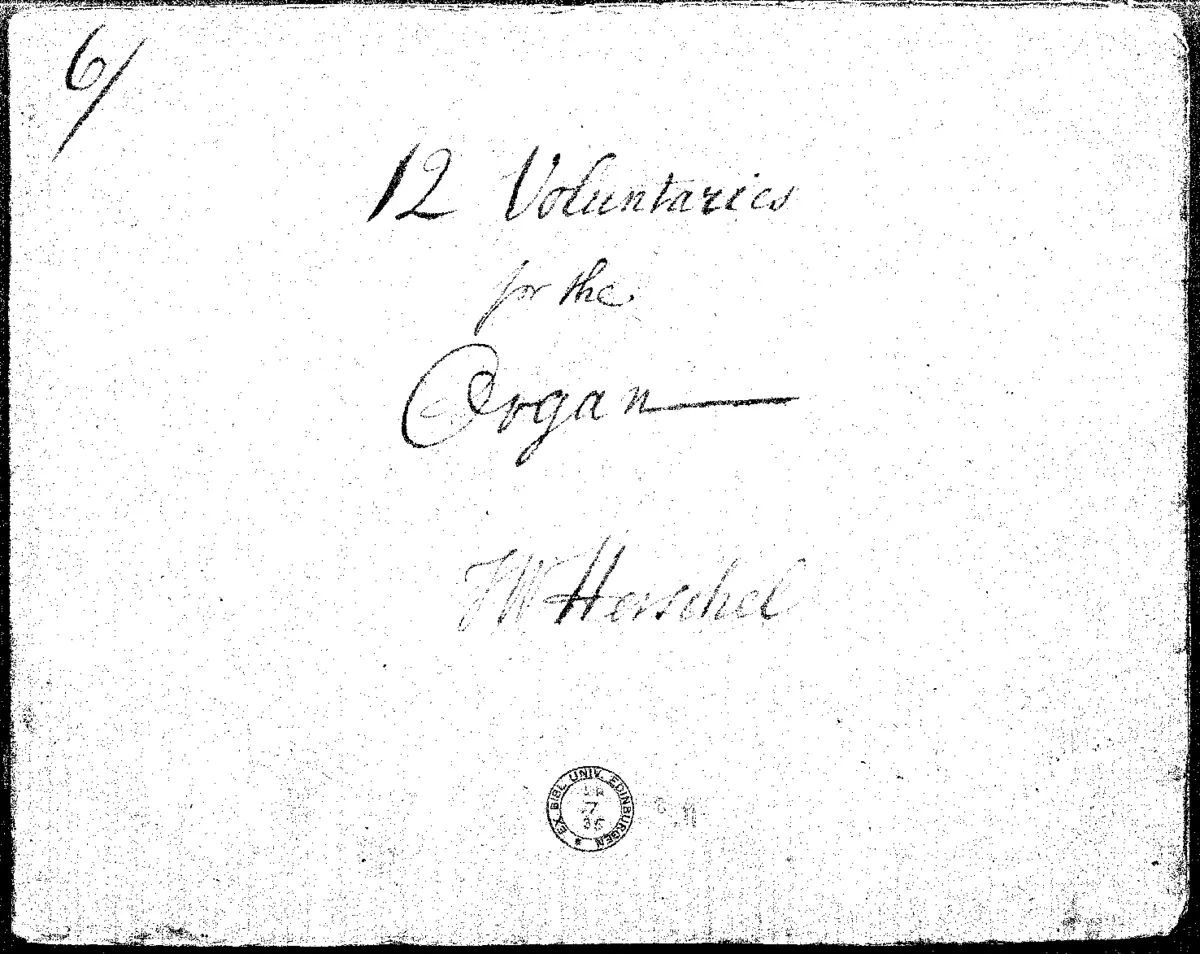 6/
12 Voluntaries
for the
Organ
FW Herschel
EX BIBL. UNIV. EDINBURGEN
7